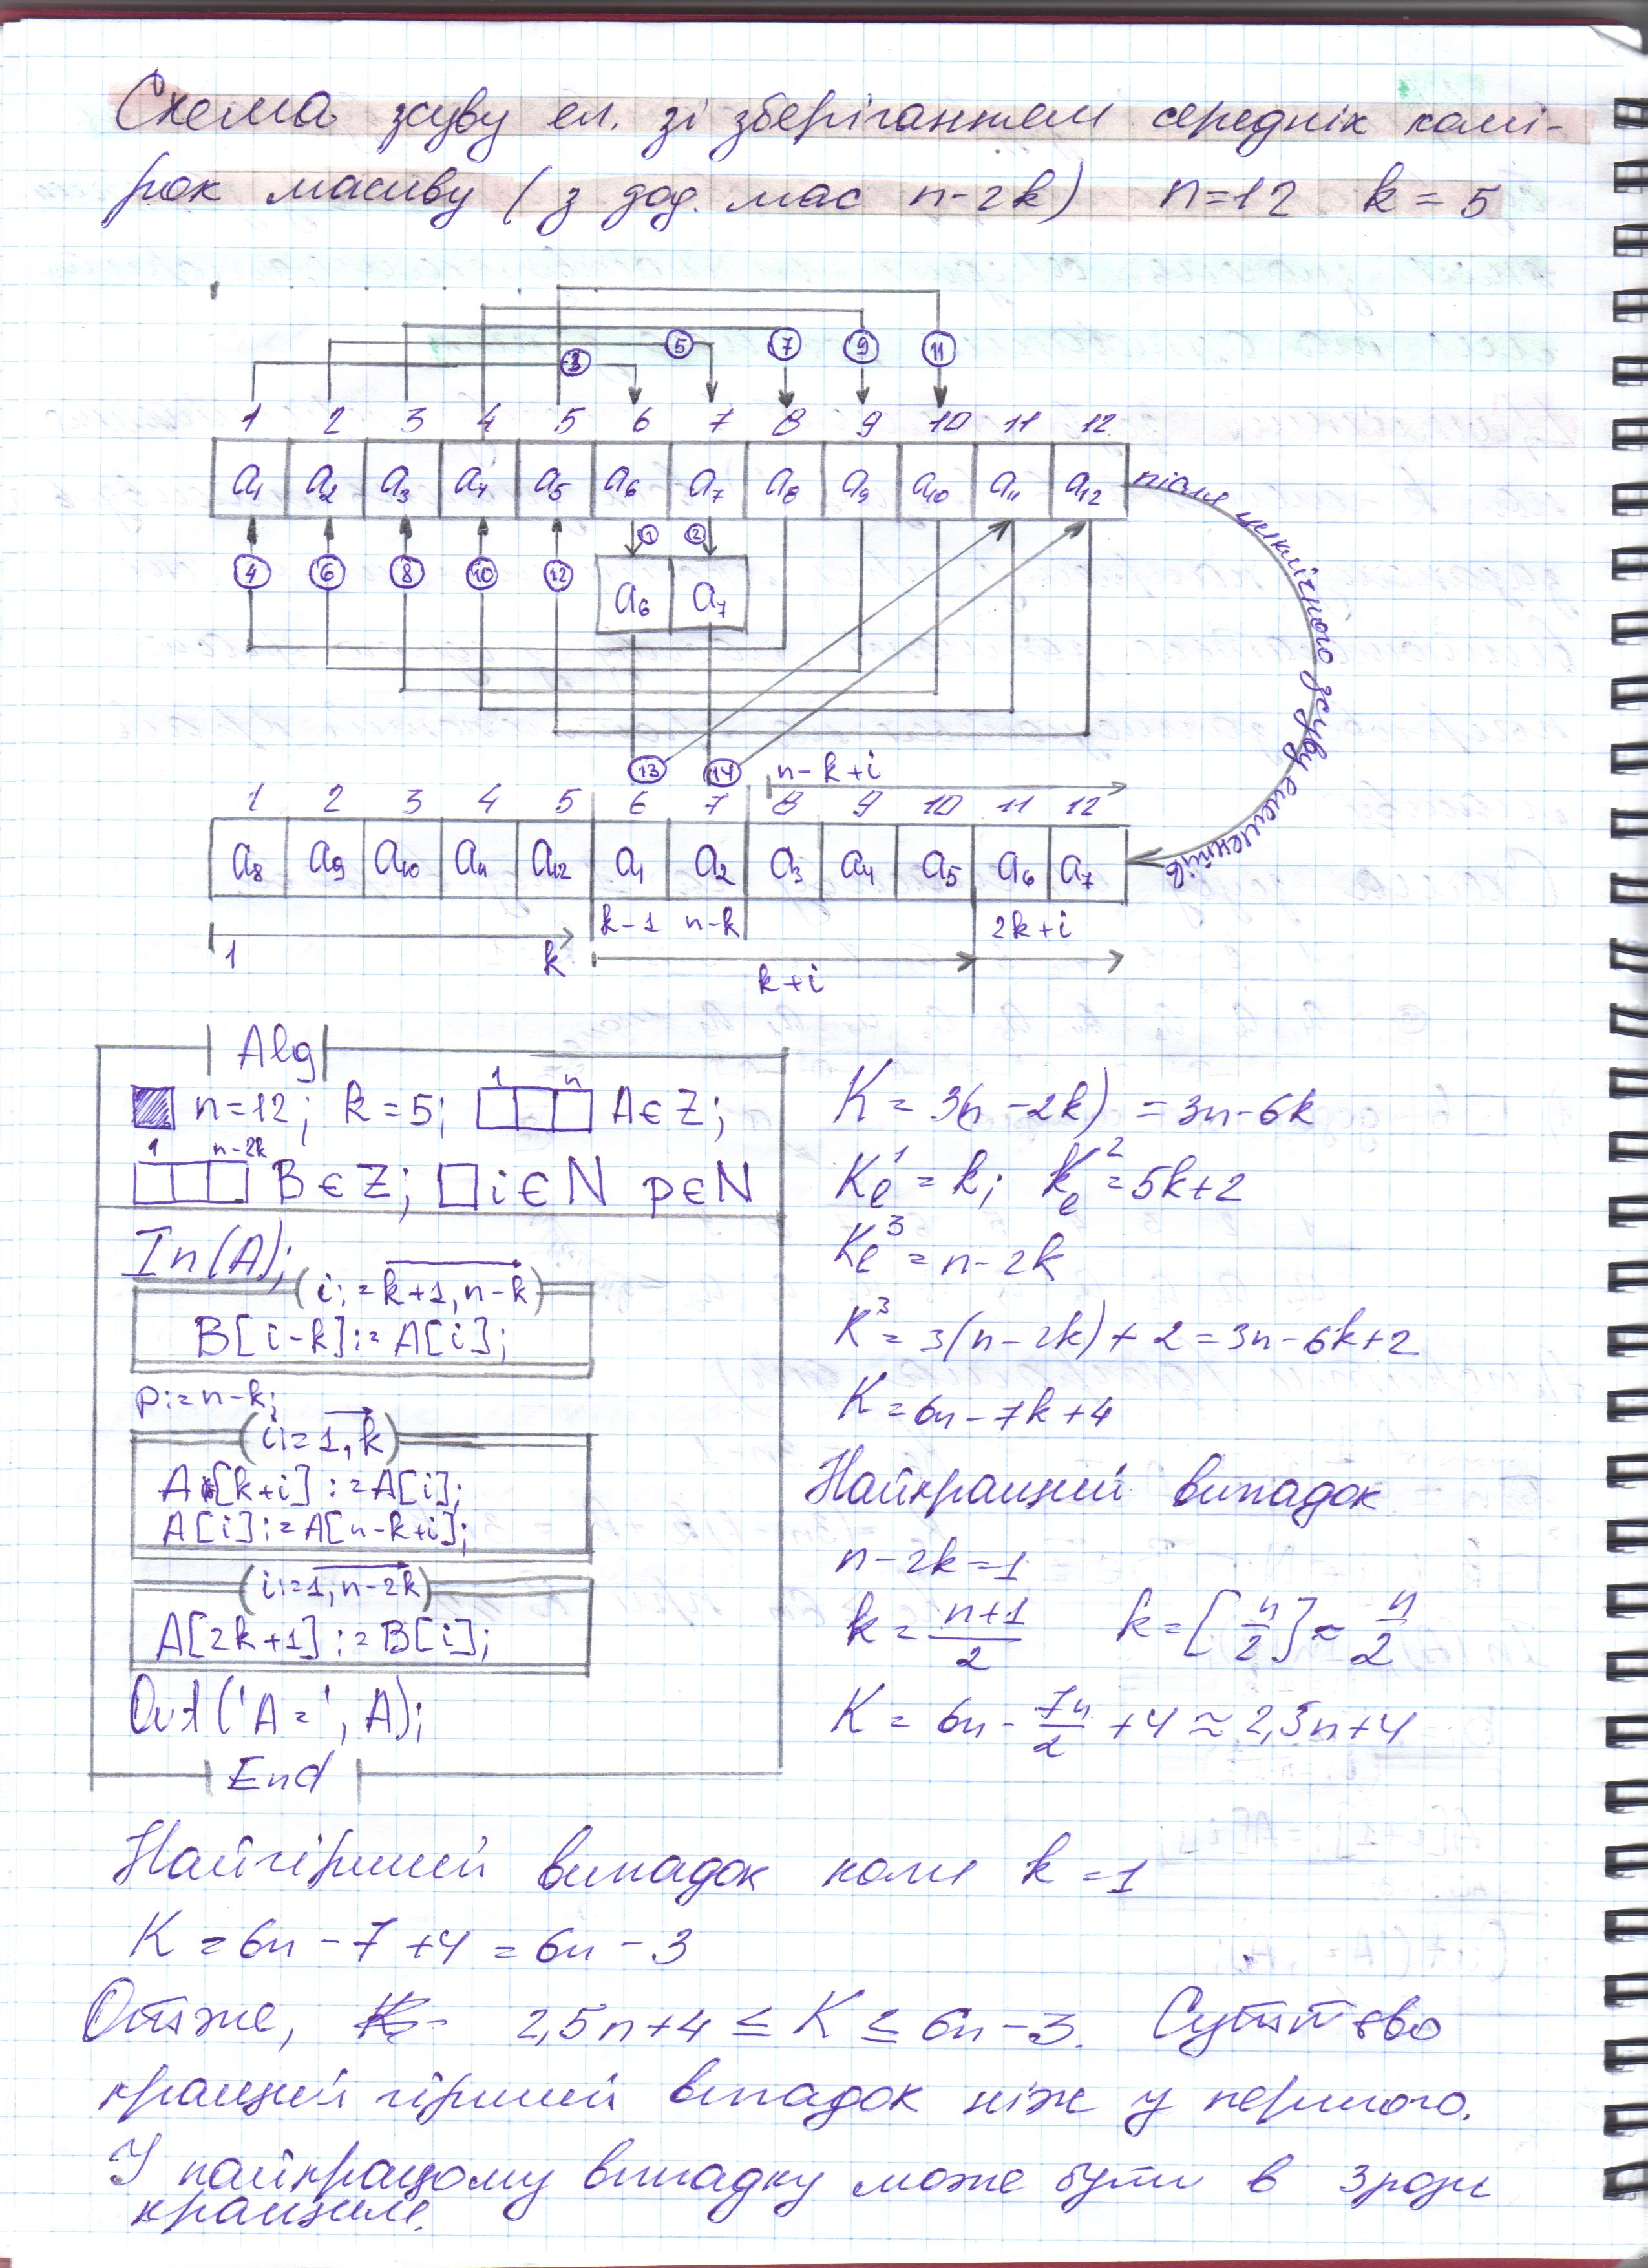 Схема зсуву ел. зі зберіганням середніх комі-
рок масиву (з дод. мас n-2k) n=12 k=5
3 5 7 9 11
1 2 3 4 5 6 7 8 9 10 11 12
a1 a2 a3 a4 a5 a6 a7 a8 a9 a10 a11 a12
після циклічного зсуву елементів
1 2
4 6 8 10 12
a6 a7
13 14 n-k+i
1 2 3 4 5 6 7 8 9 10 11 12
a8 a9 a10 a11 a12 a1 a2 a3 a4 a5 a6 a7
k-1 n-k 2k+i
1 k
k+i
Alg
n=12; k=5; 1 n A∈Z;
1 n-2k B∈Z; i∈N p∈N
In(A);
(i:=k+1,n-k)
B[i-k]:=A[i];
p:=n-k;
(i:=1,k)
A[k+i]:=A[i];
A[i]:=A[n-k+i];
(i:=1,n-2k)
A[2k+1]:=B[i];
Out('A=',A);
End
K=3(n-2k)=3n-6k
Ke^1=k; Ke^2=5k+2
Ke^3=n-2k
K^3=3(n-2k)+2=3n-6k+2
K=6n-7k+4
Найкращий випадок
n-2k=1
k=(n+1)/2 k=[n/2]≈n/2
K=6n-7n/2+4≈2,5n+4
Найгірший випадок коли k=1
K=6n-7+4=6n-3
Отже, 2,5n+4≤K≤6n-3. Суттєво
кращий гірший випадок ніж у першого.
У найкращому випадку може бути в 3 рази
кращим.